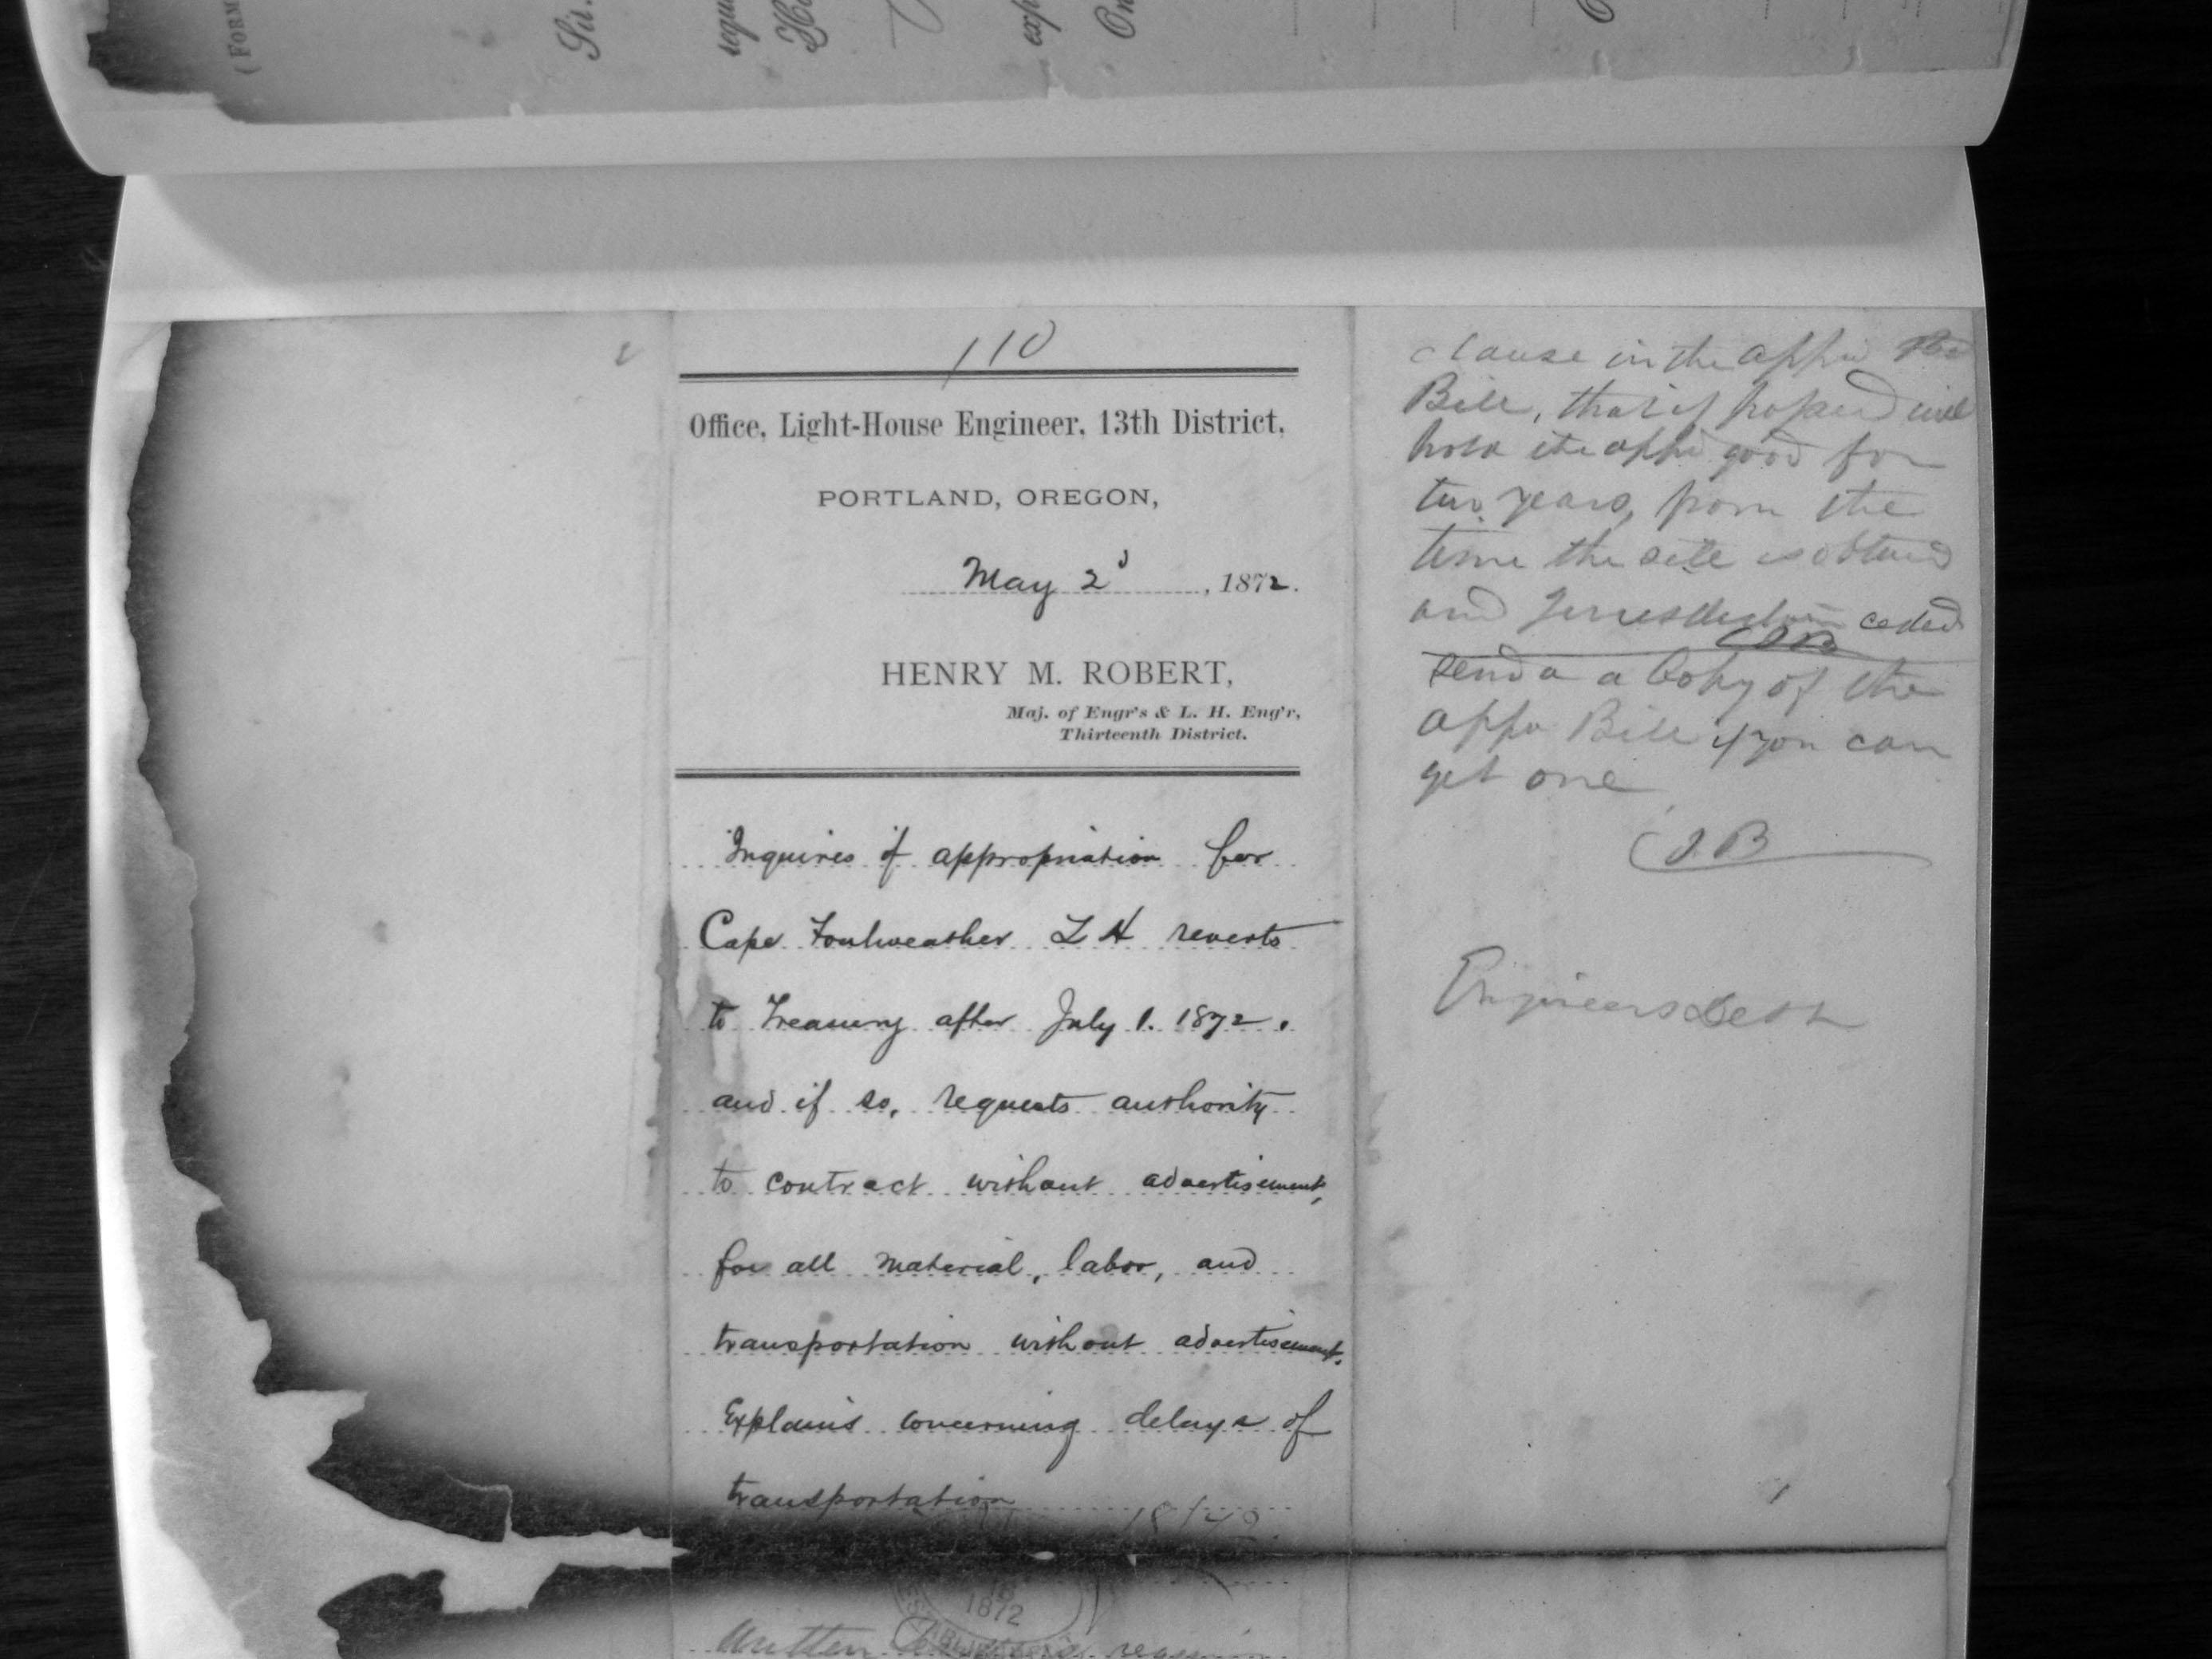 (FORM
Sir.
requ
exp
On
110
Office, Light-House Engineer, 13th District,
PORTLAND, OREGON,
May 2d, 1872.
HENRY M. ROBERT,
Maj. of Engr's & L. H. Eng'r,
Thirteenth District.
Inquires if appropriation for
Cape Foulweather L H reverts
to Treasury after July 1. 1872.
and if so, requests authority
to contract without advertisement,
for all material, labor, and
transportation without advertisement.
Explains concerning delays of
transportation
1872
Written
clause in the appn
Bill, that if passed will
hold the appn good for
two years, from the
time the site is obtained
and Jurisdiction ceded
send a a Copy of the
appn Bill if you can
get one
Engineers Desk